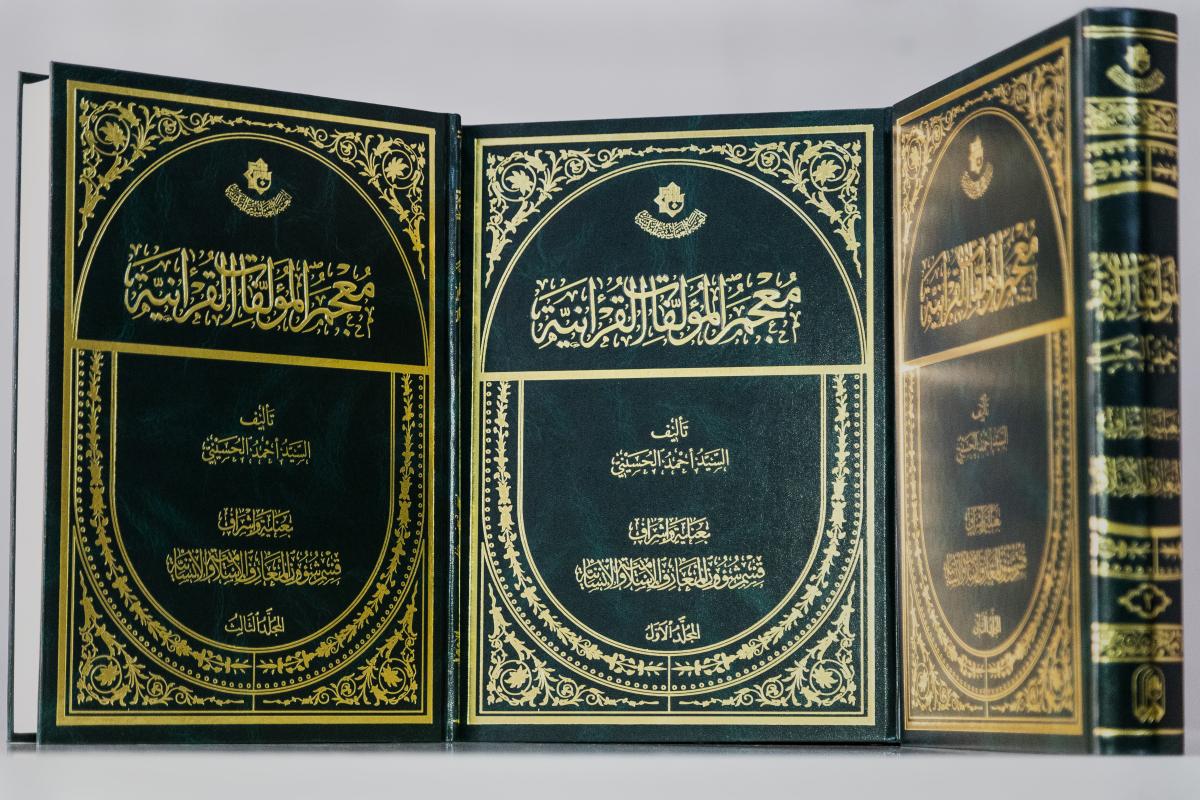 معجم المؤلفات القرآنية
تأليف
السيد أحمد الحسيني
بعناية وإشراف
قسم شؤون المعارف الإسلامية والإنسانية
المجلد الثالث
معجم المؤلفات القرآنية
تأليف
السيد أحمد الحسيني
بعناية وإشراف
قسم شؤون المعارف الإسلامية والإنسانية
المجلد الأول
معجم المؤلفات القرآنية
تأليف
السيد أحمد الحسيني
بعناية وإشراف
قسم شؤون المعارف الإسلامية والإنسانية
المجلد الثاني
٢